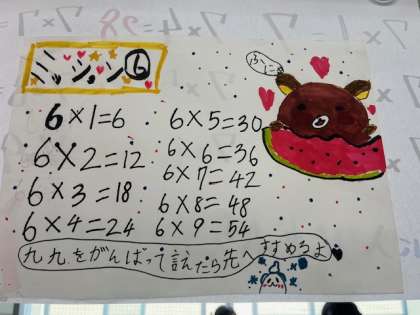 ミッション⑥
ふにゃ
6×1=6
6×2=12
6×3=18
6×4=24
6×5=30
6×6=36
6×7=42
6×8=48
6×9=54
九九をがんばって言えたら先へすすめるよ♥